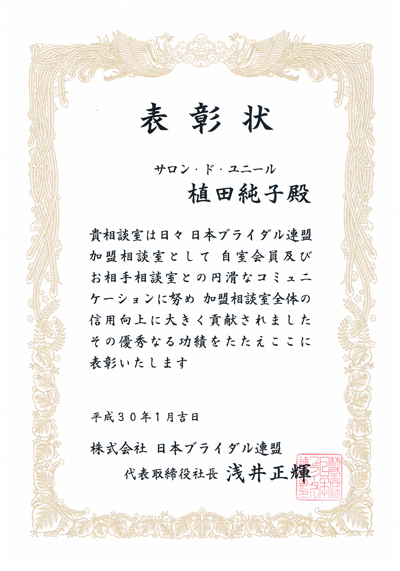 表彰状
サロン・ド・ユニール
植田純子殿
貴相談室は日々 日本ブライダル連盟
加盟相談室として 自室会員及び
お相手相談室との円滑なコミュニ
ケーションに努め 加盟相談室全体の
信用向上に大きく貢献されました
その優秀なる功績をたたえここに
表彰いたします
平成30年1月吉日
株式会社 日本ブライダル連盟
代表取締役社長 浅井正輝